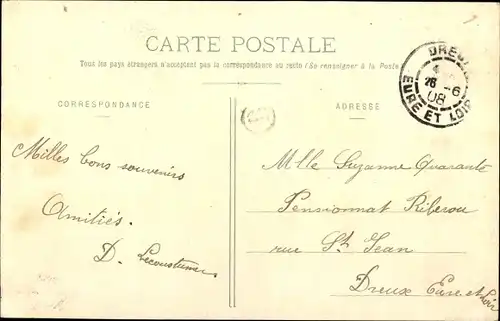 CARTE POSTALE
Tous les pays étrangers n'acceptant pas la correspondance au recto (Se renseigner à la Poste)
CORRESPONDANCE
ADRESSE
DREUX
26 -6
08
EURE ET LOIR
Milles bons souvenirs
Amitiés.
D. Lecoustumer
Mlle Suzanne Quarante
Pensionnat Riberou
rue St Jean
Dreux Eure et Loir